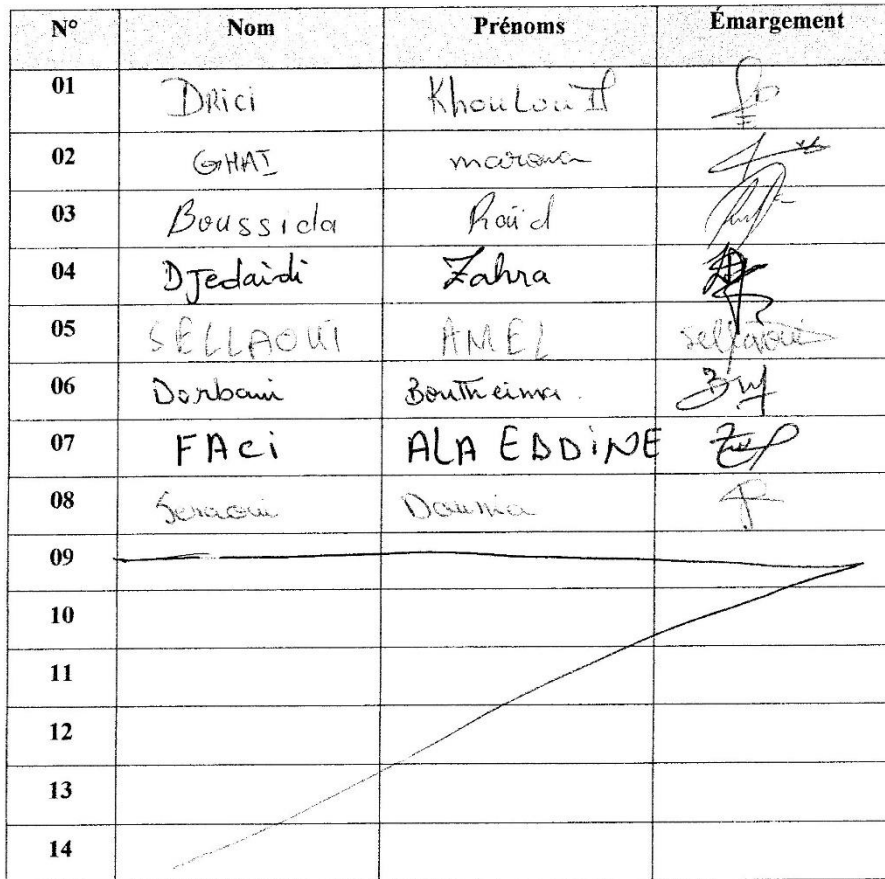 N° Nom Prénoms Émargement
01 DRici KhouLouD
02 GHAI marowa
03 Boussida Raïd
04 Djedaidi Zahra
05 SELLAOUI AMEL sellaoui
06 Dorbani Boutheina
07 FACi ALA EDDiNE
08 Seraoui Dounia
09
10
11
12
13
14